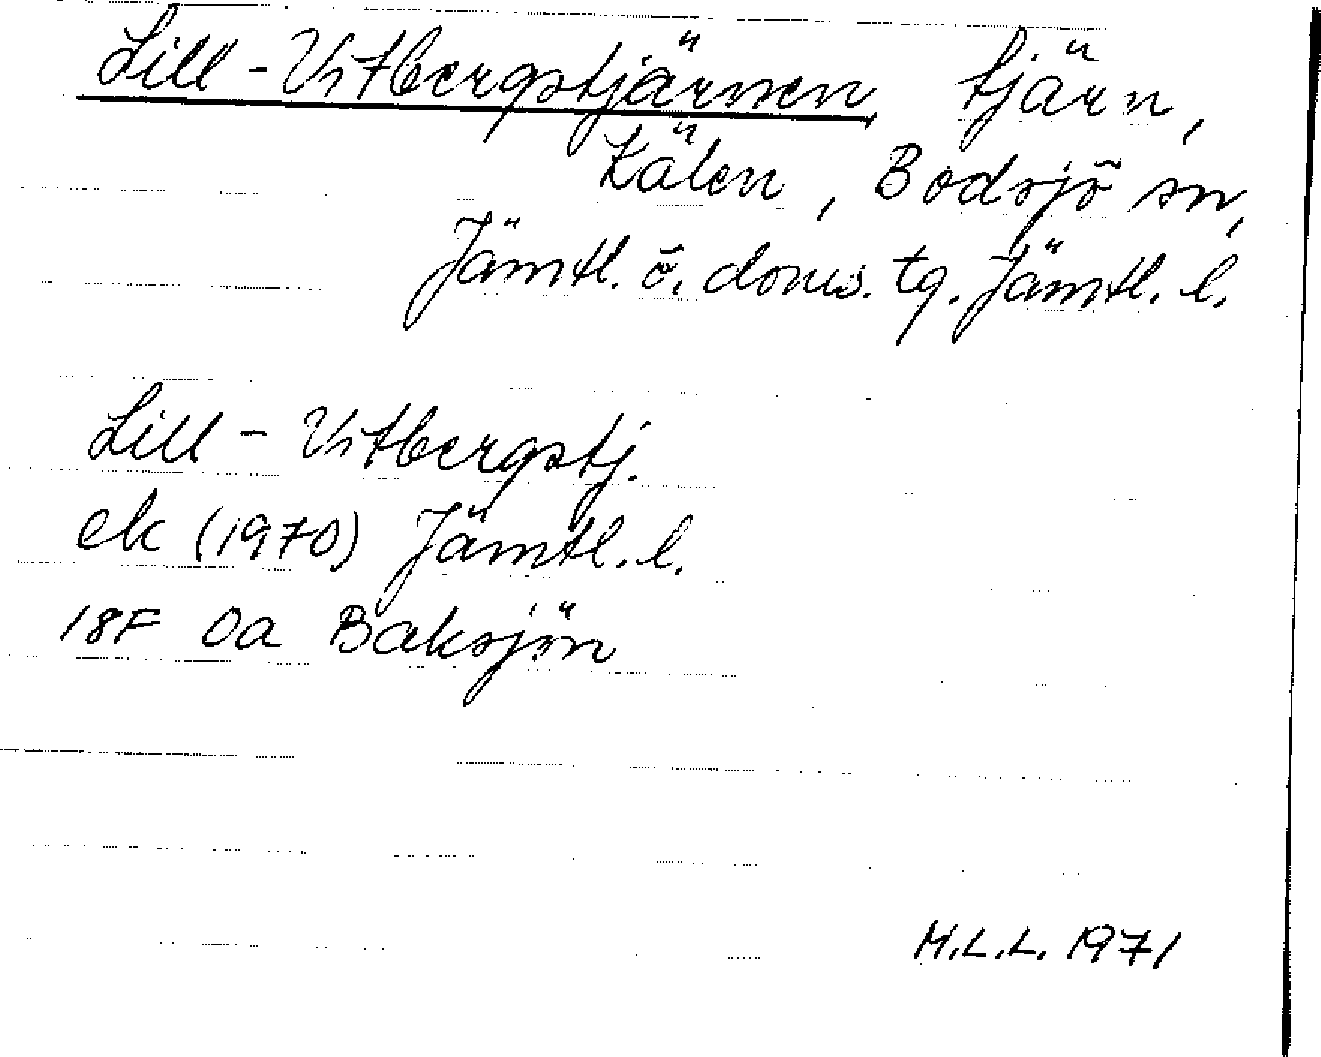 Lill-Vitbergstjärnen tjärn,
Kälen, Bodsjö sn,
Jämtl. ö. doms. tg. Jämtl. l.
Lill-Vitbergstj.
ek (1970) Jämtl. l.
18F 0a Baksjön
M.L.L. 1971